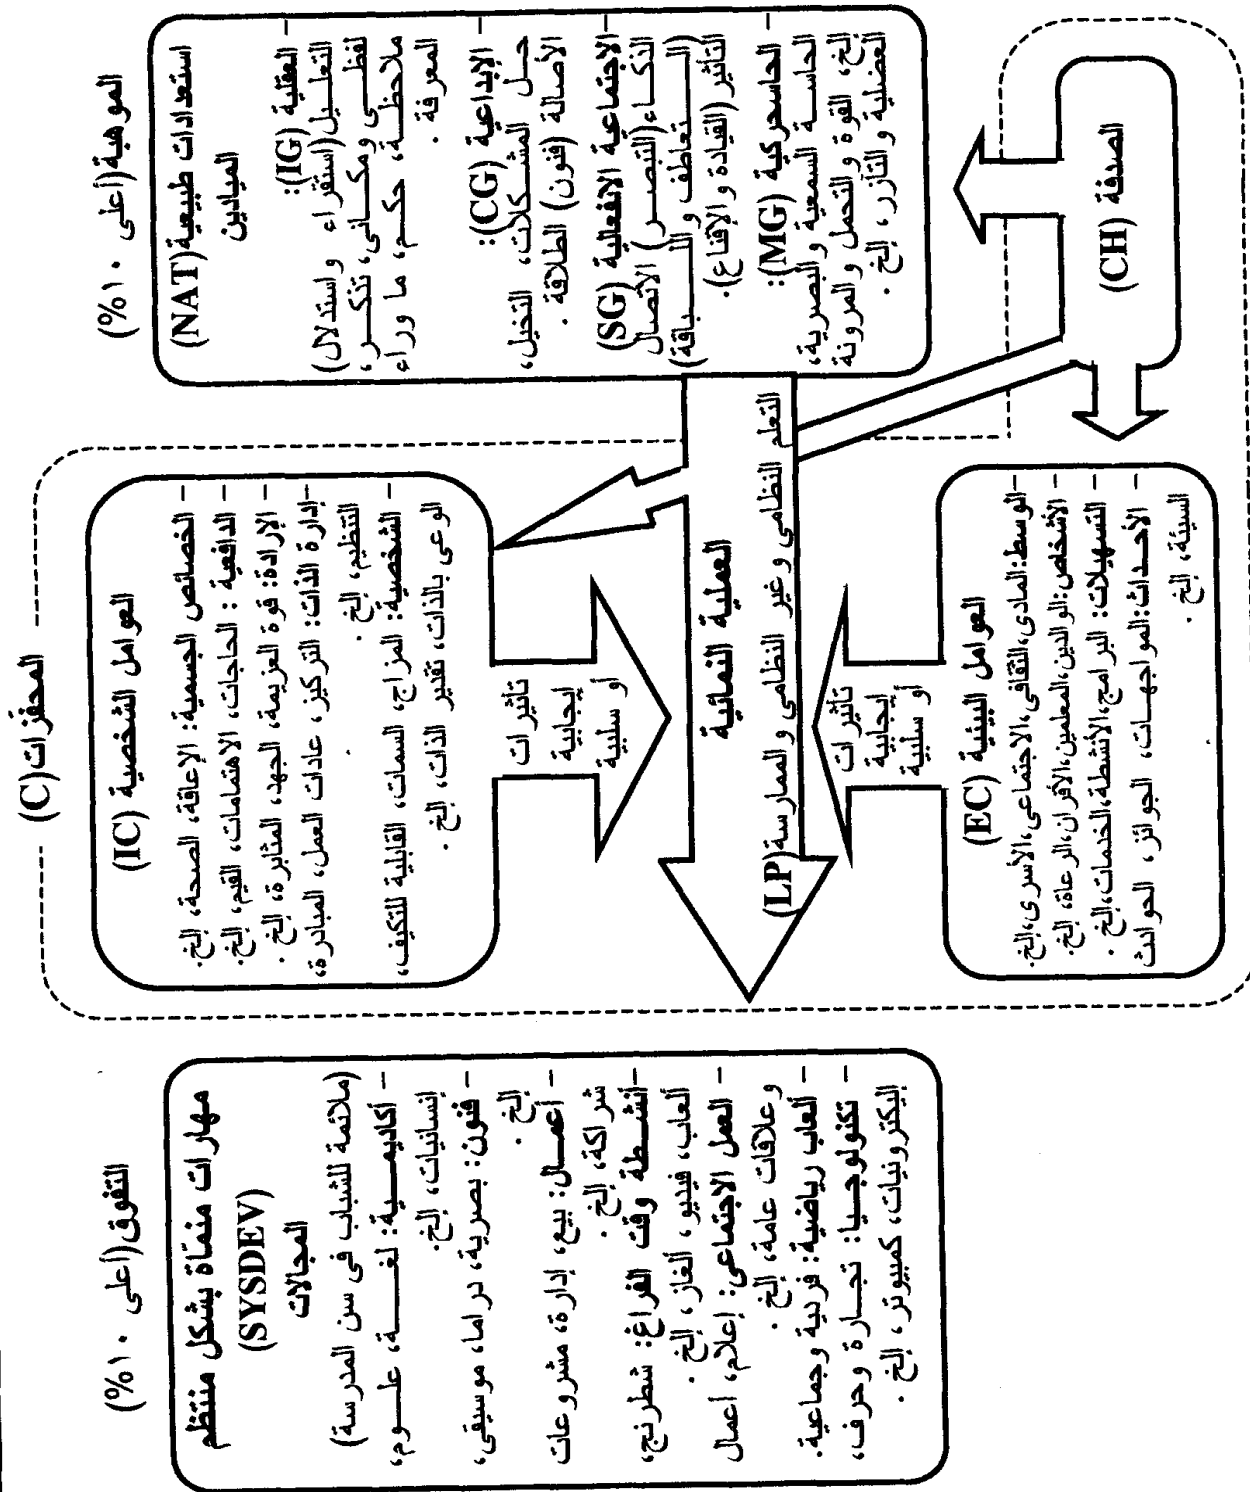 الموهبة (أعلى ١٠%)
استعدادات طبيعية (NAT)
الميادين
- العقلية (IG):
التعليل (استقراء واستدلال)
لفظى ومكانى، تذكر،
ملاحظة، حكم، ما وراء
المعرفة .
- الإبداعية (CG):
حل المشكلات، التخيل،
الأصالة (فنون) الطلاقة .
- الاجتماعية الانفعالية (SG)
الذكاء (التبصر) الاتصال
(التعاطف واللباقة)
التأثير (القيادة والإقناع).
- الحاسحركية (MG):
الحاسة السمعية والبصرية،
إلخ، القوة والتحمل والمرونة
العضلية والتآزر، إلخ .
الصدفة
(CH)
المحفزات (C)
العوامل الشخصية (IC)
- الخصائص الجسمية: الإعاقة، الصحة، إلخ.
- الدافعية : الحاجات، الاهتمامات، القيم، إلخ.
- الإرادة: قوة العزيمة، الجهد، المثابرة، إلخ .
- إدارة الذات: التركيز، عادات العمل، المبادرة،
التنظيم، إلخ .
- الشخصية: المزاج، السمات، القابلية للتكيف،
الوعى بالذات، تقدير الذات، إلخ .
تأثيرات
إيجابية
أو سلبية
العملية النمائية
التعلم النظامى وغير النظامى والممارسة (LP)
تأثيرات
إيجابية
أو سلبية
العوامل البيئية (EC)
- الوسط: المادى، الثقافى، الاجتماعى، الأسرى، إلخ.
- الأشخاص: الوالدين، المعلمين، الأقران، الرعاة، إلخ.
- التسهيلات: البرامج، الأنشطة، الخدمات، إلخ .
- الأحداث: المواجهات، الجوائز، الحوادث
السيئة، إلخ .
التفوق (أعلى ١٠%)
مهارات منماة بشكل منتظم
(SYSDEV)
المجالات
(ملائمة للشباب فى سن المدرسة)
- أكاديمية: لغة، علوم،
إنسانيات، إلخ.
- فنون: بصرية، دراما، موسيقى،
إلخ .
- أعمال: بيع، إدارة، مشروعات
شراكة، إلخ .
- أنشطة وقت الفراغ: شطرنج،
ألعاب، فيديو، ألغاز، إلخ .
- العمل الاجتماعى: إعلام، أعمال
وعلاقات عامة، إلخ .
- ألعاب رياضية: فردية وجماعية.
- تكنولوجيا: تجارة وحرف،
إليكترونيات، كمبيوتر، إلخ .